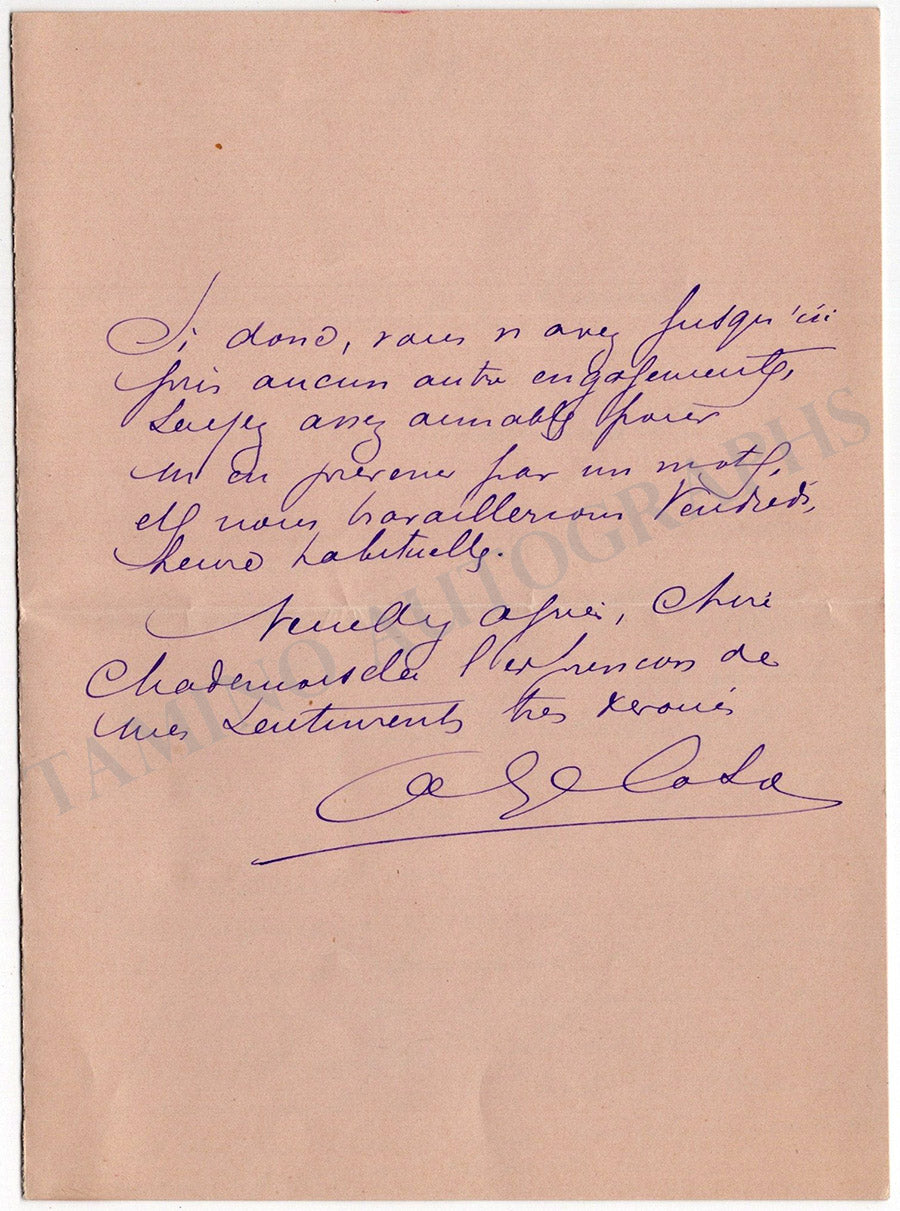 Si donc, vous n'avez jusqu'ici
pris aucun autre engagement,
soyez assez aimable pour
m'en prévenir par un mot,
et nous travaillerions Vendredi,
heure habituelle.
Veuillez agréer, Chère
Mademoiselle l'expression de
mes sentiments très dévoués
TAMINO AUTOGRAPHS